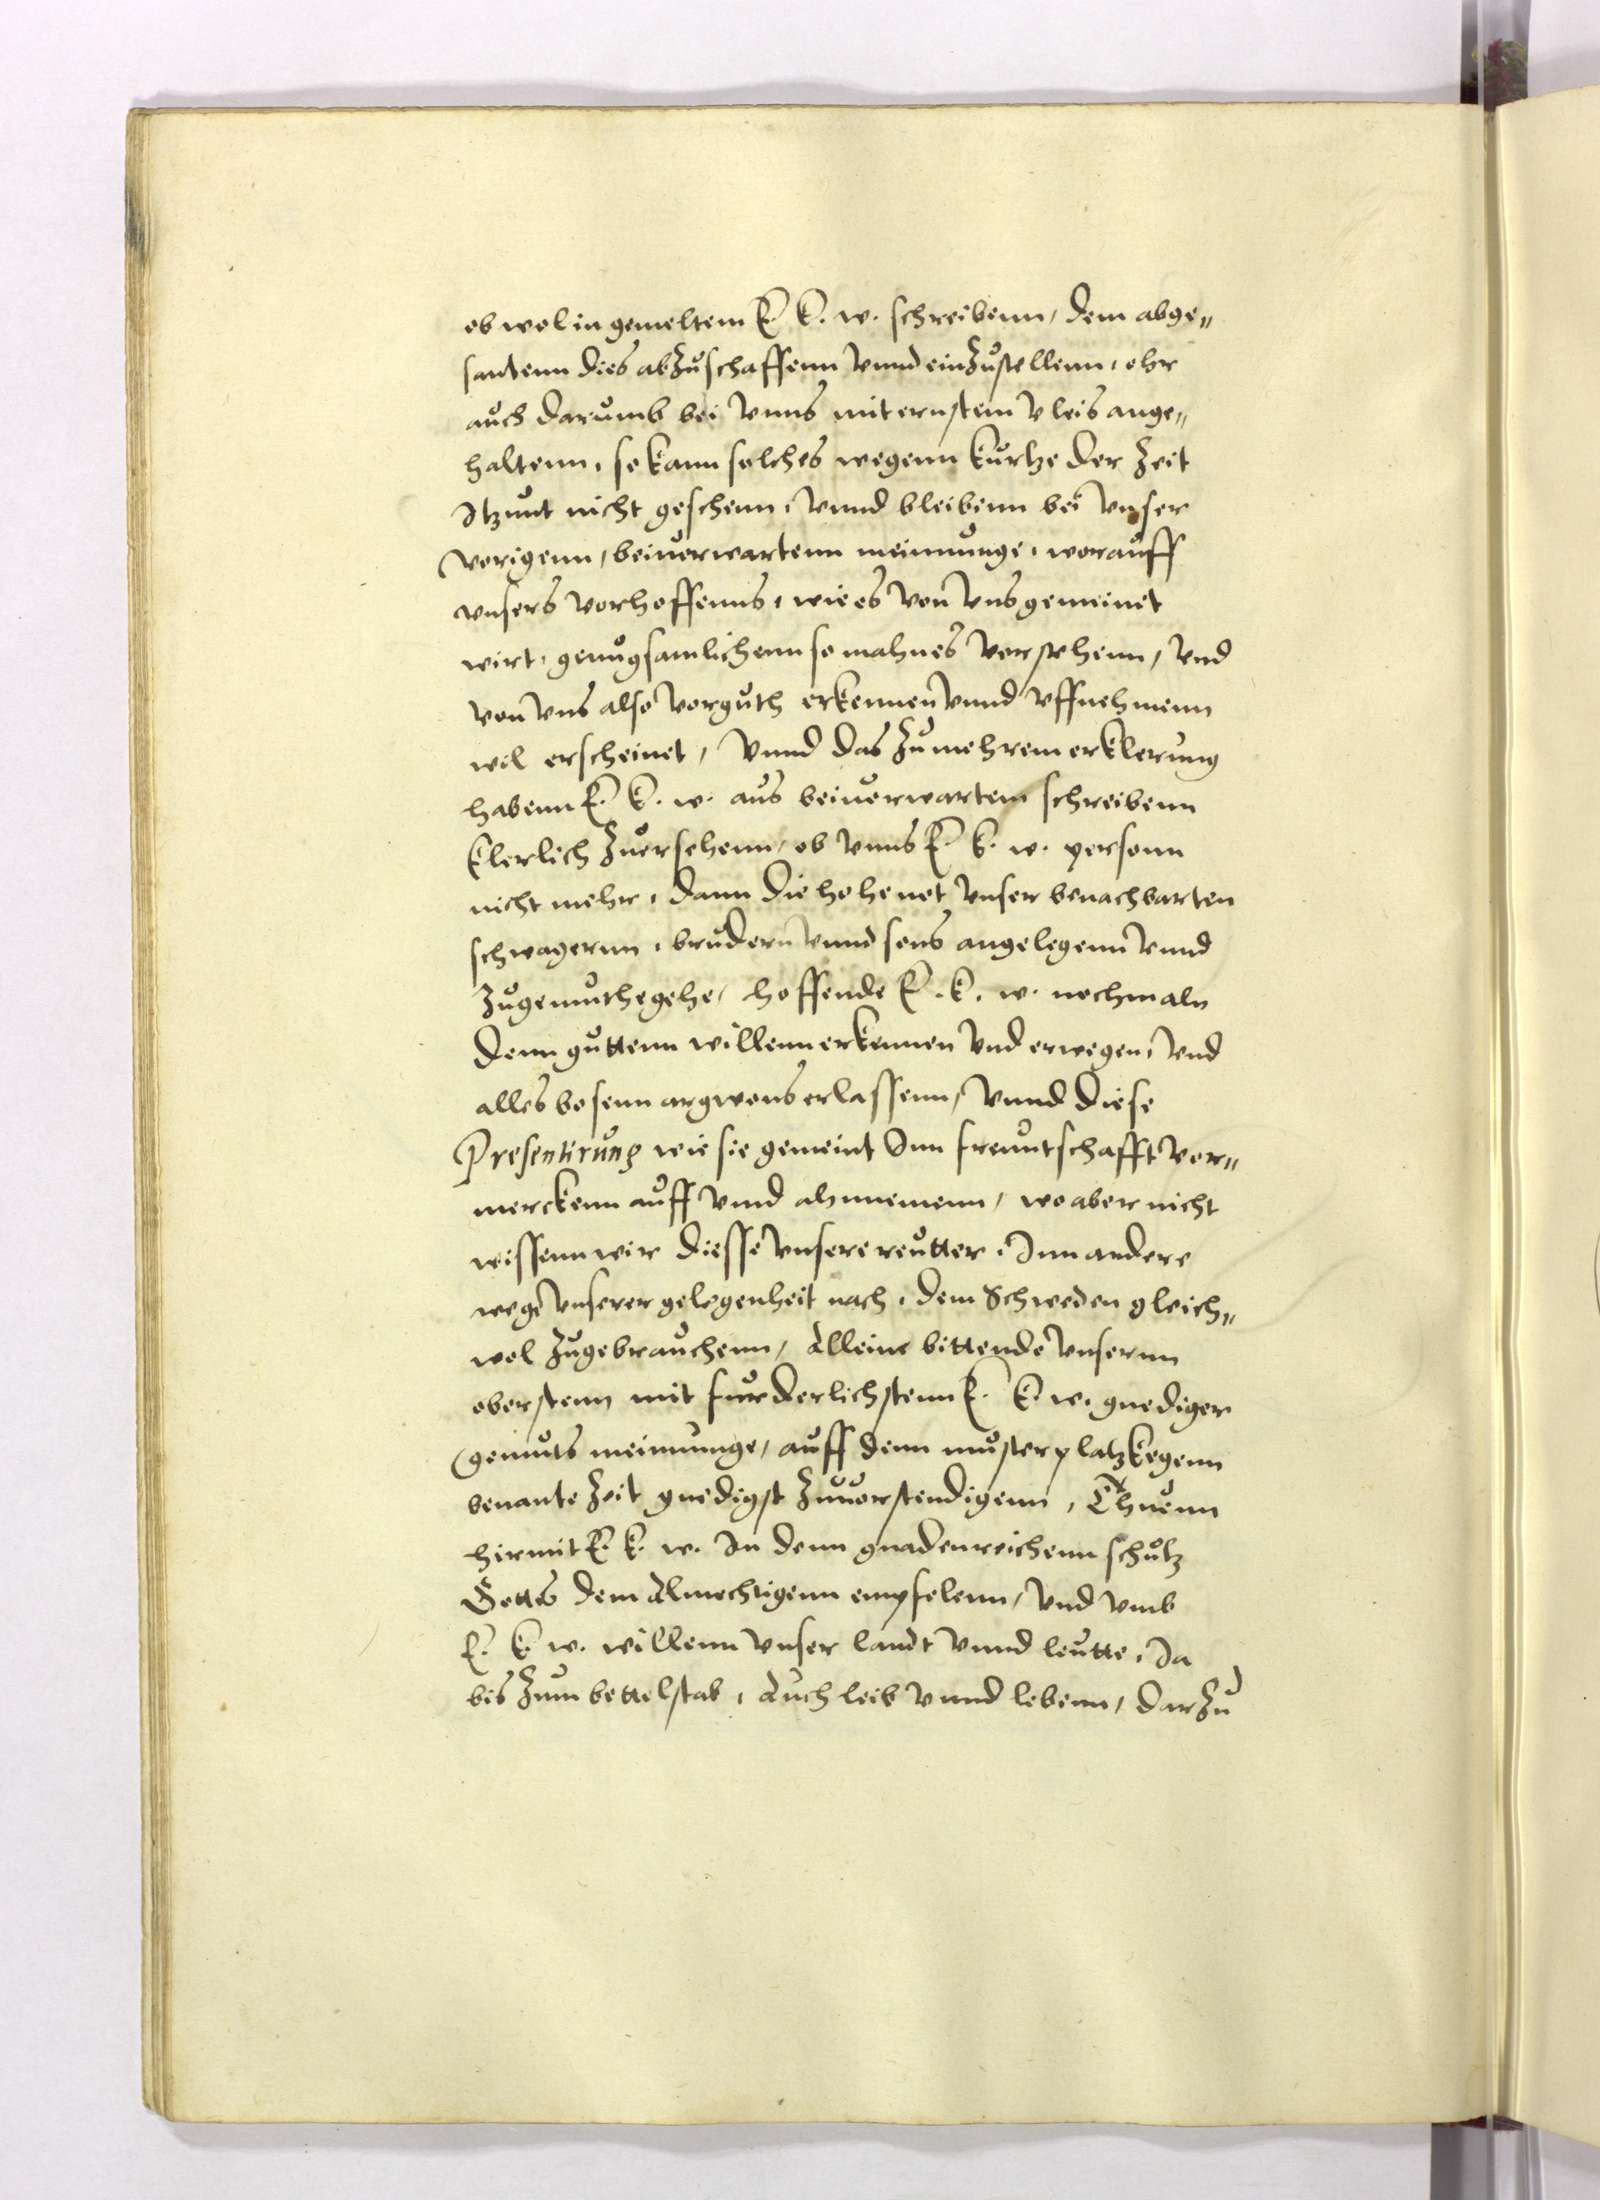 ob wol in gemeltem E. k. w. schreibenn, dem abge„
santenn dies abzuschaffenn vnnd einzustellenn, ehr
auch darumb bei vnns mit ernstem vleis ange„
haltenn, so kann solches wegenn kurtze der zeit
Itzunt nicht geschenn, vnnd bleibenn bei vnser
vorigenn, beiuerwartenn meinnunge, worauff
vnsers vorhoffenns, wie es von vns gemeinet
wirt, genugsamlichenn so mahn es verstehenn, vnd
von vns also vorguth erkennen vnnd vffnehmenn
wil erscheinet, vnnd das zu mehrem erklerung
habenn E. k. w. aus beiuerwartem schreibenn
klerlich zuersehenn, ob vnns E. k. w. personn
nicht mehr, dann die hohe not vnser benachbarten
schwagernn, brudern vnnd sons angelegenn vnnd
zugemuthe gehe, hoffende E. k. w. nochmaln
denn guttenn willenn erkennen vnd erwegen, vnd
alles bosenn argwons erlassenn, vnnd diese
Presentirung wie sie gemeint Inn freuntschafft vor„
merckenn auff vnd ahnnemenn, wo aber nicht
wissenn wir diesse vnsere reutter, Inn andere
wege vnserer gelegenheit nach, dem Schweden gleich„
wol zugebrauchenn, Alleine bittende vnsernn
oberstenn mit furderlichstenn E. k. w. gnediger
gemuts meinnunge, auff denn musterplatz kegenn
benante zeit gnedigst zuuorstendigenn, Thuenn
hirmit E. k. w. In denn gnadenreichenn schutz
Gottes dem Almechtigenn empfelenn, vnd vmb
E. k. w. willenn vnser landt vnnd leutte, Ja
bis zum bettelstab, Auch leib vnnd lebenn, darzu